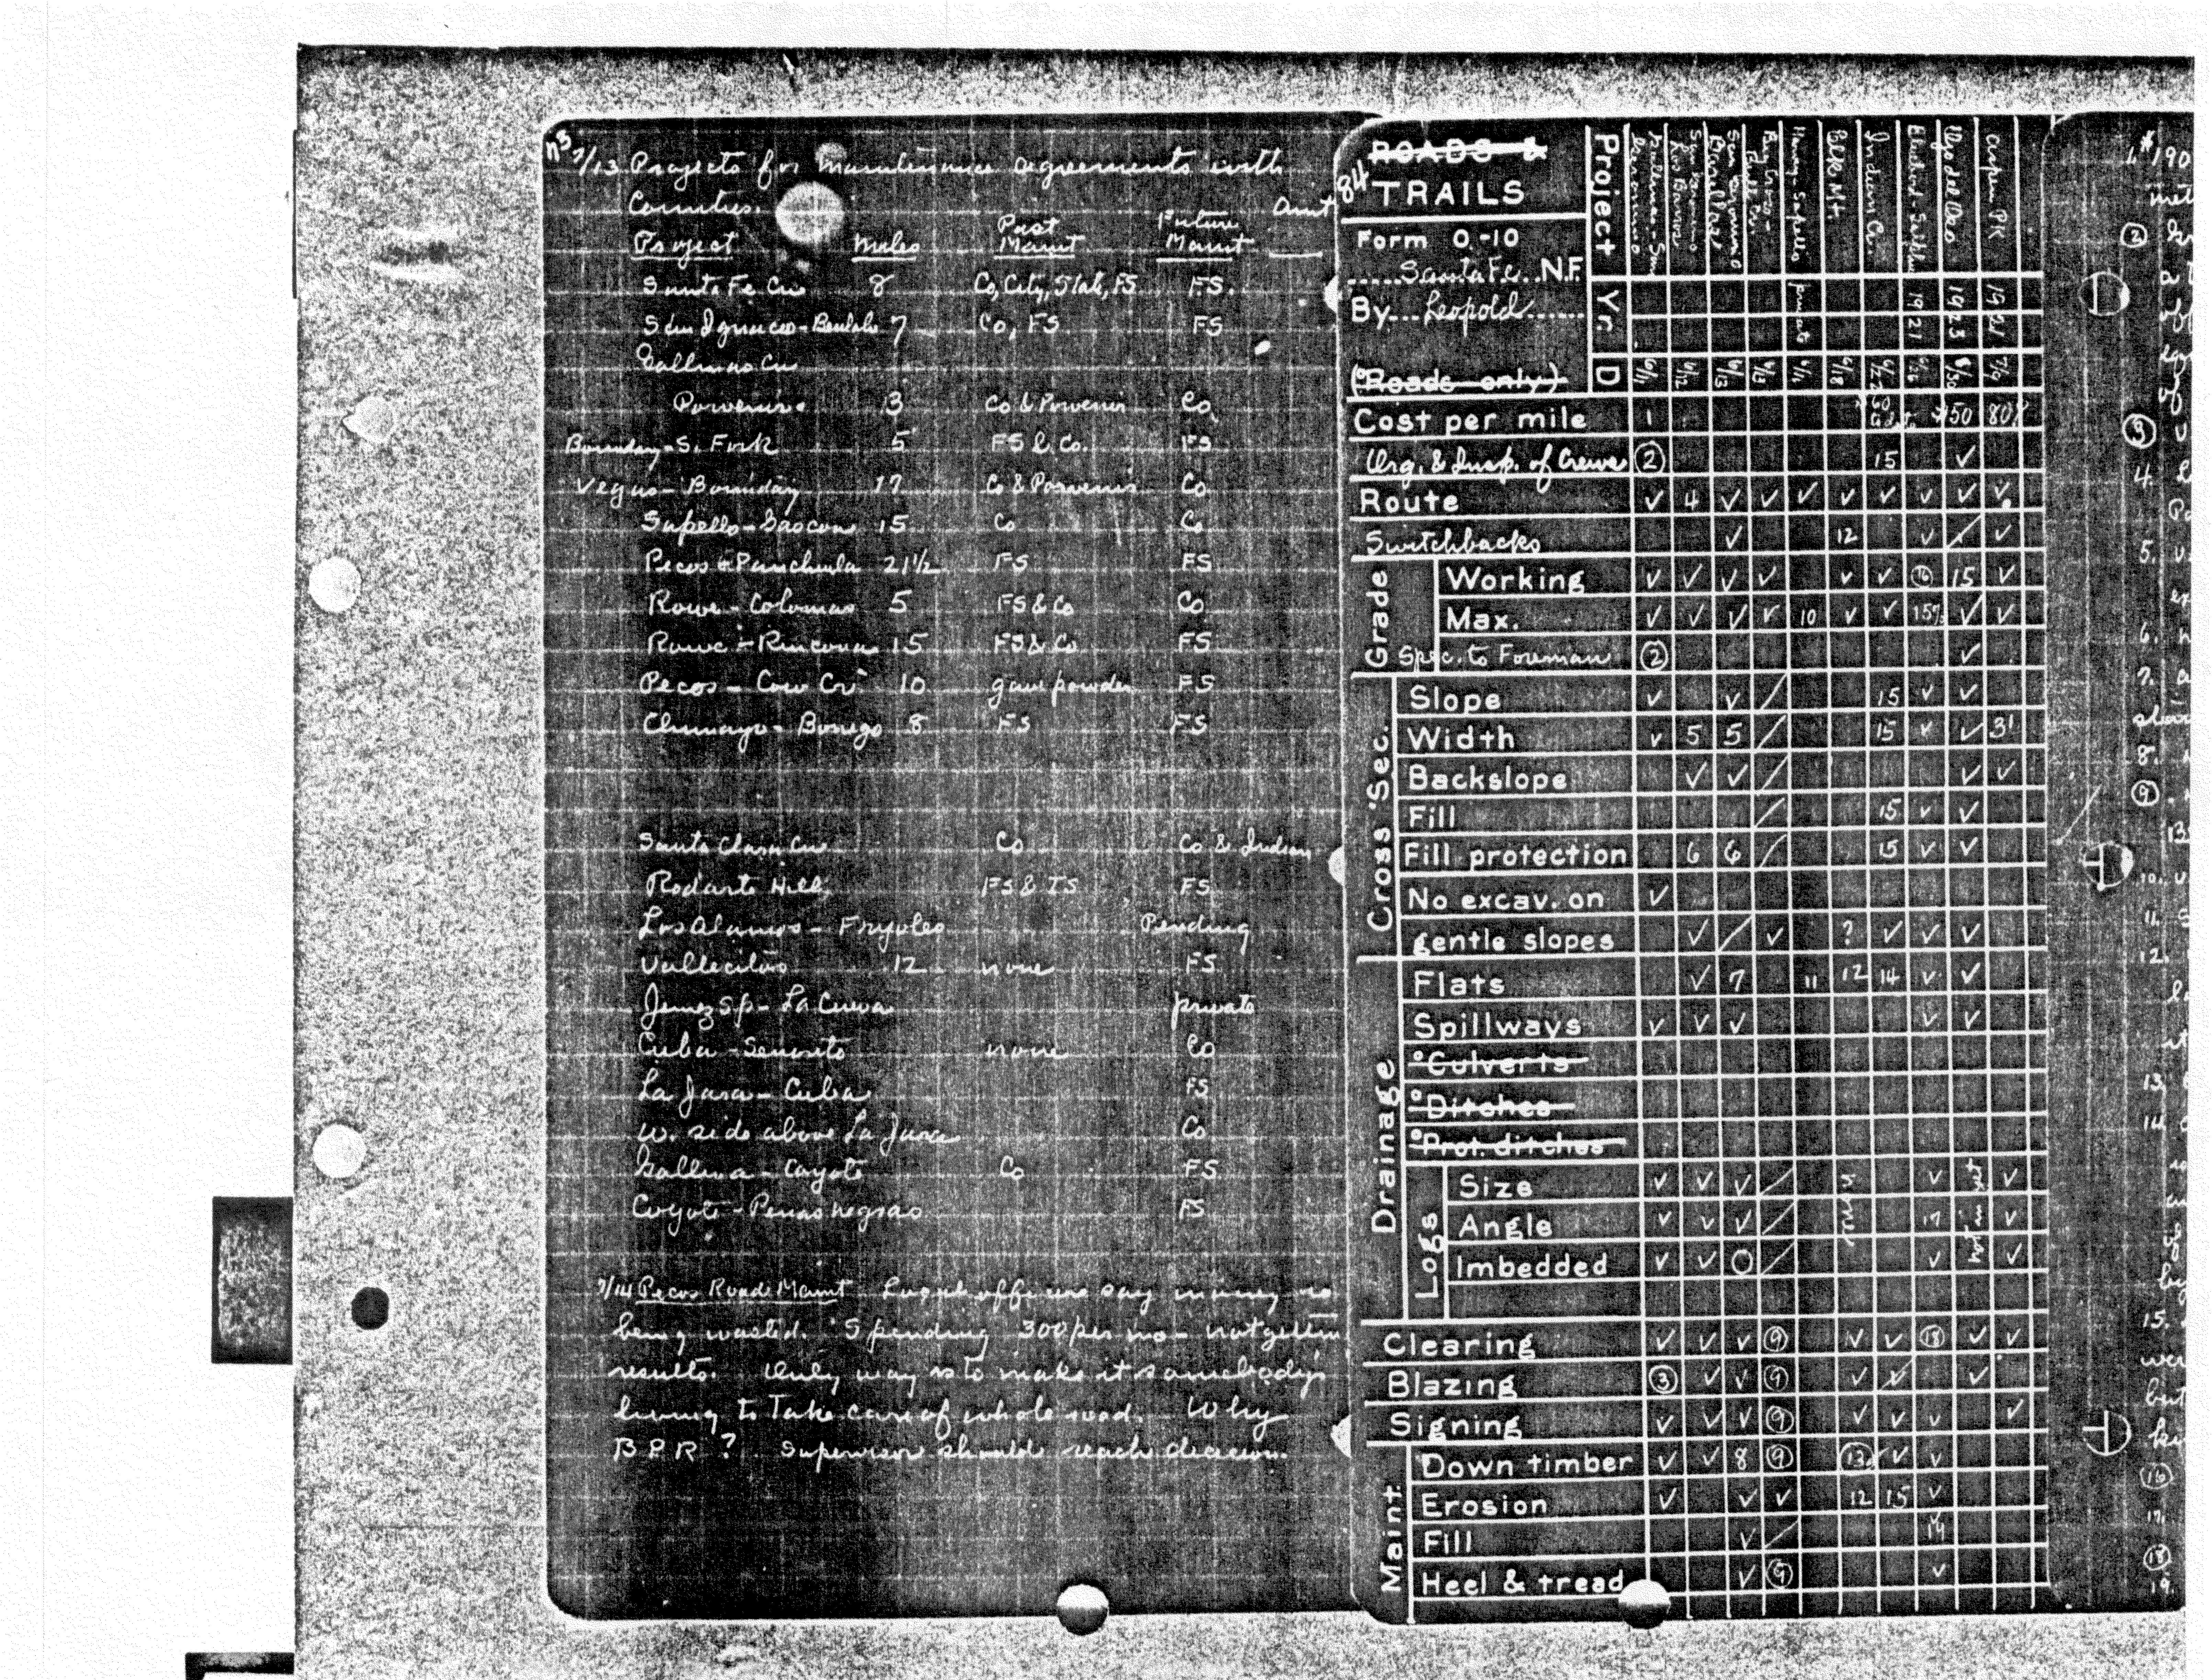 7/13 Projects for maintenance agreements with
Counties.
Amt
Project Miles Past Maint Future Maint
Santa Fe Cn 8 Co, City, State, FS FS.
San Ignacio - Beulah 7 Co, FS FS
Gallinas Cn
Porvenir 3 Co & Porvenir Co.
Boundary - S. Fork 5 FS & Co. FS
Vegas - Boundary 17 Co & Porvenir Co.
Sapello - Gascon 15 Co Co.
Pecos - Panchuela 21 1/2 FS FS
Rowe - Colonias 5 FS & Co Co.
Rowe - Rincona 15 FS & Co. FS
Pecos - Cow Cr 10 gave powder FS
Chimayo - Borrego 8 FS FS
Santa Clara Cn Co Co & Indian
Rodarte Hill FS & IS FS
Los Alamos - Fryoles Pending
Vallecitos 12 none FS
Jemez Sp - La Cueva private
Cuba - Senorito none Co
La Jara - Cuba FS
W. side above La Jara Co
Gallina - Coyote Co FS
Coyote - Penas negras FS
7/14 Pecos Road Maint officers say money is
being wasted. Spending 300 per mo - not gettin
results. Only way is to make it somebody's
living to take care of whole road. Why
BPR? Supervisor should reach decision.
84
ROADS &
TRAILS
Form O-10
Santa Fe N.F.
By Leopold
(°Roads only)
Project
Yr.
D
Blk Mt
Indian Cr.
private 1921 1923 1921
6/11 6/12 6/13
Cost per mile 1 $150 80
Org. & Insp. of Crews ② 15 ✓
Route ✓ 4 ✓ ✓ ✓ ✓ ✓ ✓ ✓ ✓
Switchbacks ✓ 12 ✓ / ✓
Grade
Working ✓ ✓ ✓ ✓ ✓ ✓ ⑯ 15 ✓
Max. ✓ ✓ ✓ ✓ 10 ✓ ✓ 15% ✓ ✓
Spec. to Foreman ② ✓
Cross Sec.
Slope ✓ ✓ / 15 ✓ ✓
Width ✓ 5 5 / 15 ✓ ✓ 3'
Backslope ✓ ✓ / ✓ ✓
Fill / 15 ✓ ✓
Fill protection 6 6 / 15 ✓ ✓
No excav. on ✓
gentle slopes ✓ / ✓ ? ✓ ✓ ✓
Drainage
Flats ✓ 7 11 12 14 ✓ ✓
Spillways ✓ ✓ ✓ ✓ ✓
°Culverts
°Ditches
°Prot. ditches
Logs
Size ✓ ✓ ✓ / ✓ ✓
Angle ✓ ✓ ✓ / 17 ✓
Imbedded ✓ ✓ O / ✓ ✓
none
not in yet
Clearing ✓ ✓ ✓ ⑨ ✓ ✓ ⑱ ✓ ✓
Blazing ③ ✓ ✓ ⑨ ✓ ✓ ✓
Signing ✓ ✓ ✓ ⑨ ✓ ✓ ✓ ✓
Maint.
Down timber ✓ ✓ 8 ⑨ ⑬ ✓ ✓
Erosion ✓ ✓ ✓ 12 15 ✓
Fill ✓ / 14
Heel & tread ✓ ⑨ ✓
1. $190
②
③
4.
5.
6.
7.
8.
⑨
10.
11.
12.
13.
14.
15.
but
⑯
17.
⑱
19.